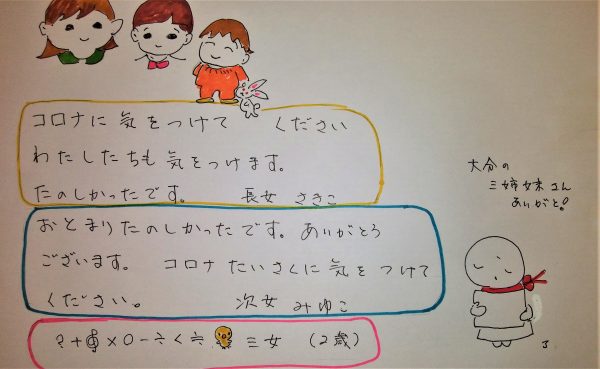 コロナに気をつけて ください
わたしたちも気をつけます。
たのしかったです。 長女 さきこ
おとまりたのしかったです。ありがとう
ございます。 コロナたいさくに気をつけて
ください。 次女 みゆこ
?+∮×0-÷く≒ 三女 (2歳)
大分の
三姉妹さん
ありがと!
了